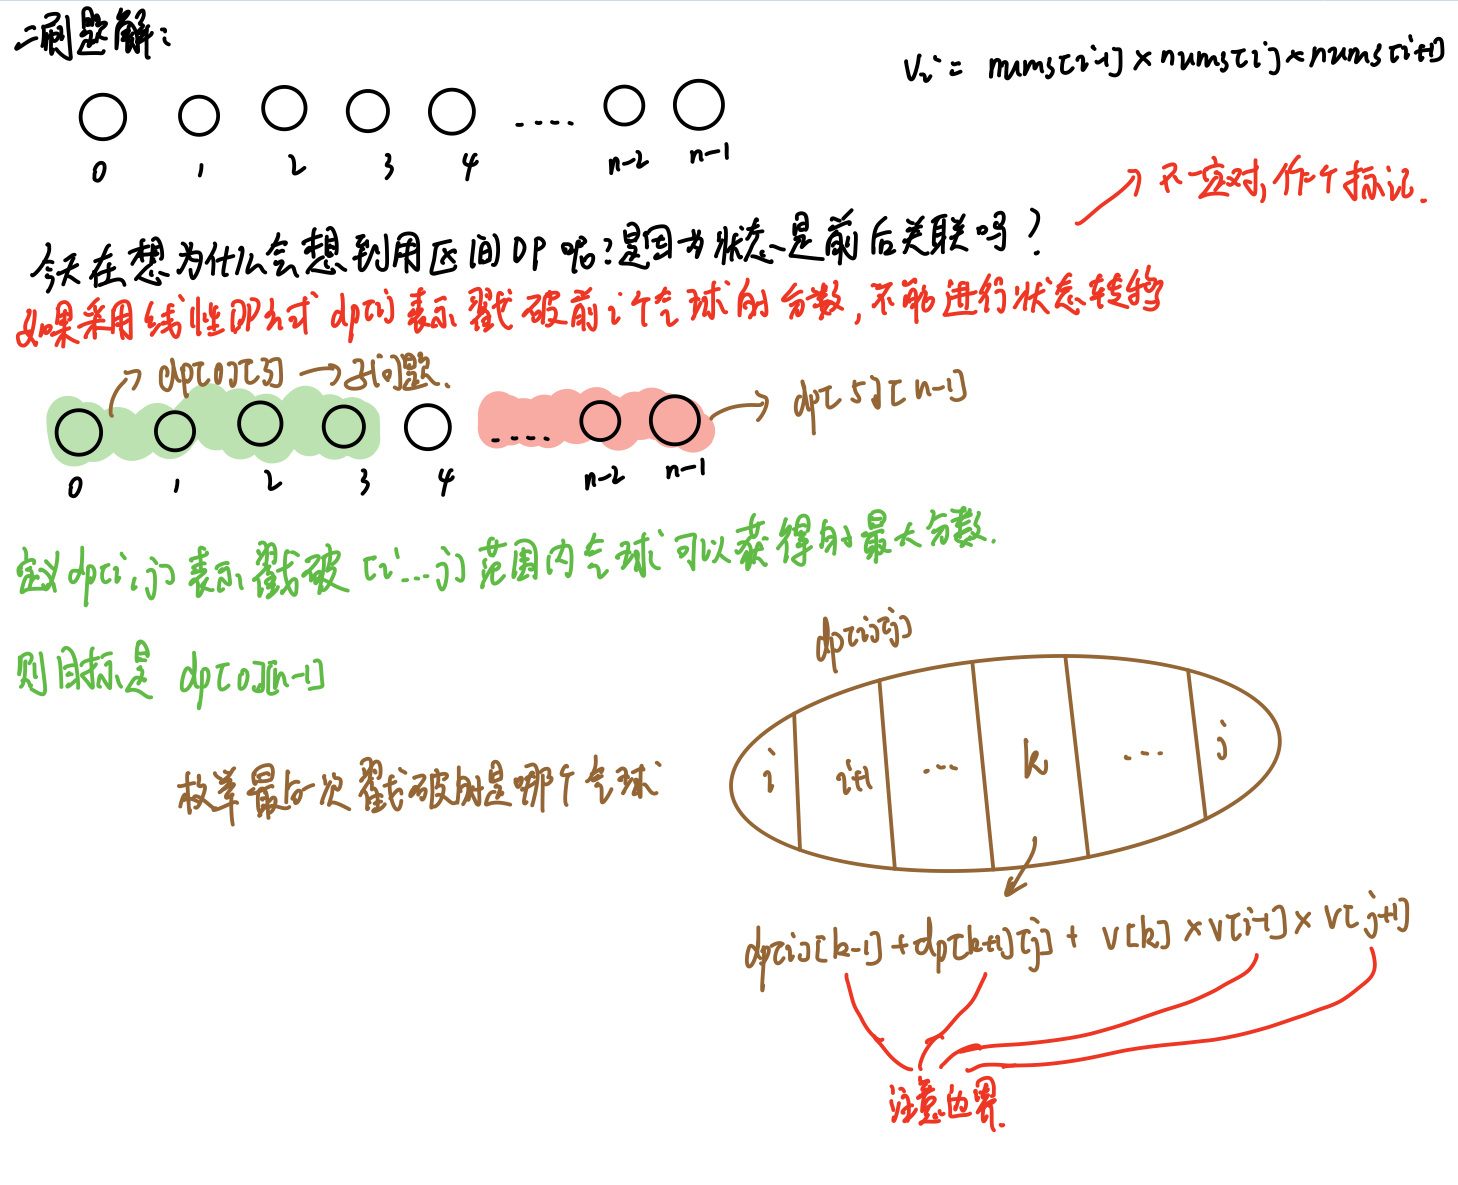 二刷题解：
Vi = nums[i-1] × nums[i] × nums[i+1]
0 1 2 3 4 .... n-2 n-1
不一定对，作个标记.
今天在想为什么会想到用区间DP呢？是因为状态是前后关联吗？
如果采用线性DP方式 dp[i] 表示戳破前i个气球的分数，不能进行状态转移
dp[0][3] → 子问题.
dp[5][n-1]
....
0 1 2 3 4 n-2 n-1
定义dp[i,j] 表示戳破 [i...j] 范围内气球可以获得的最大分数.
则目标是 dp[0][n-1]
dp[i][j]
枚举最后一次戳破的是哪个气球
i i+1 ... k ... j
dp[i][k-1] + dp[k+1][j] + v[k] × v[i-1] × v[j+1]
注意边界.